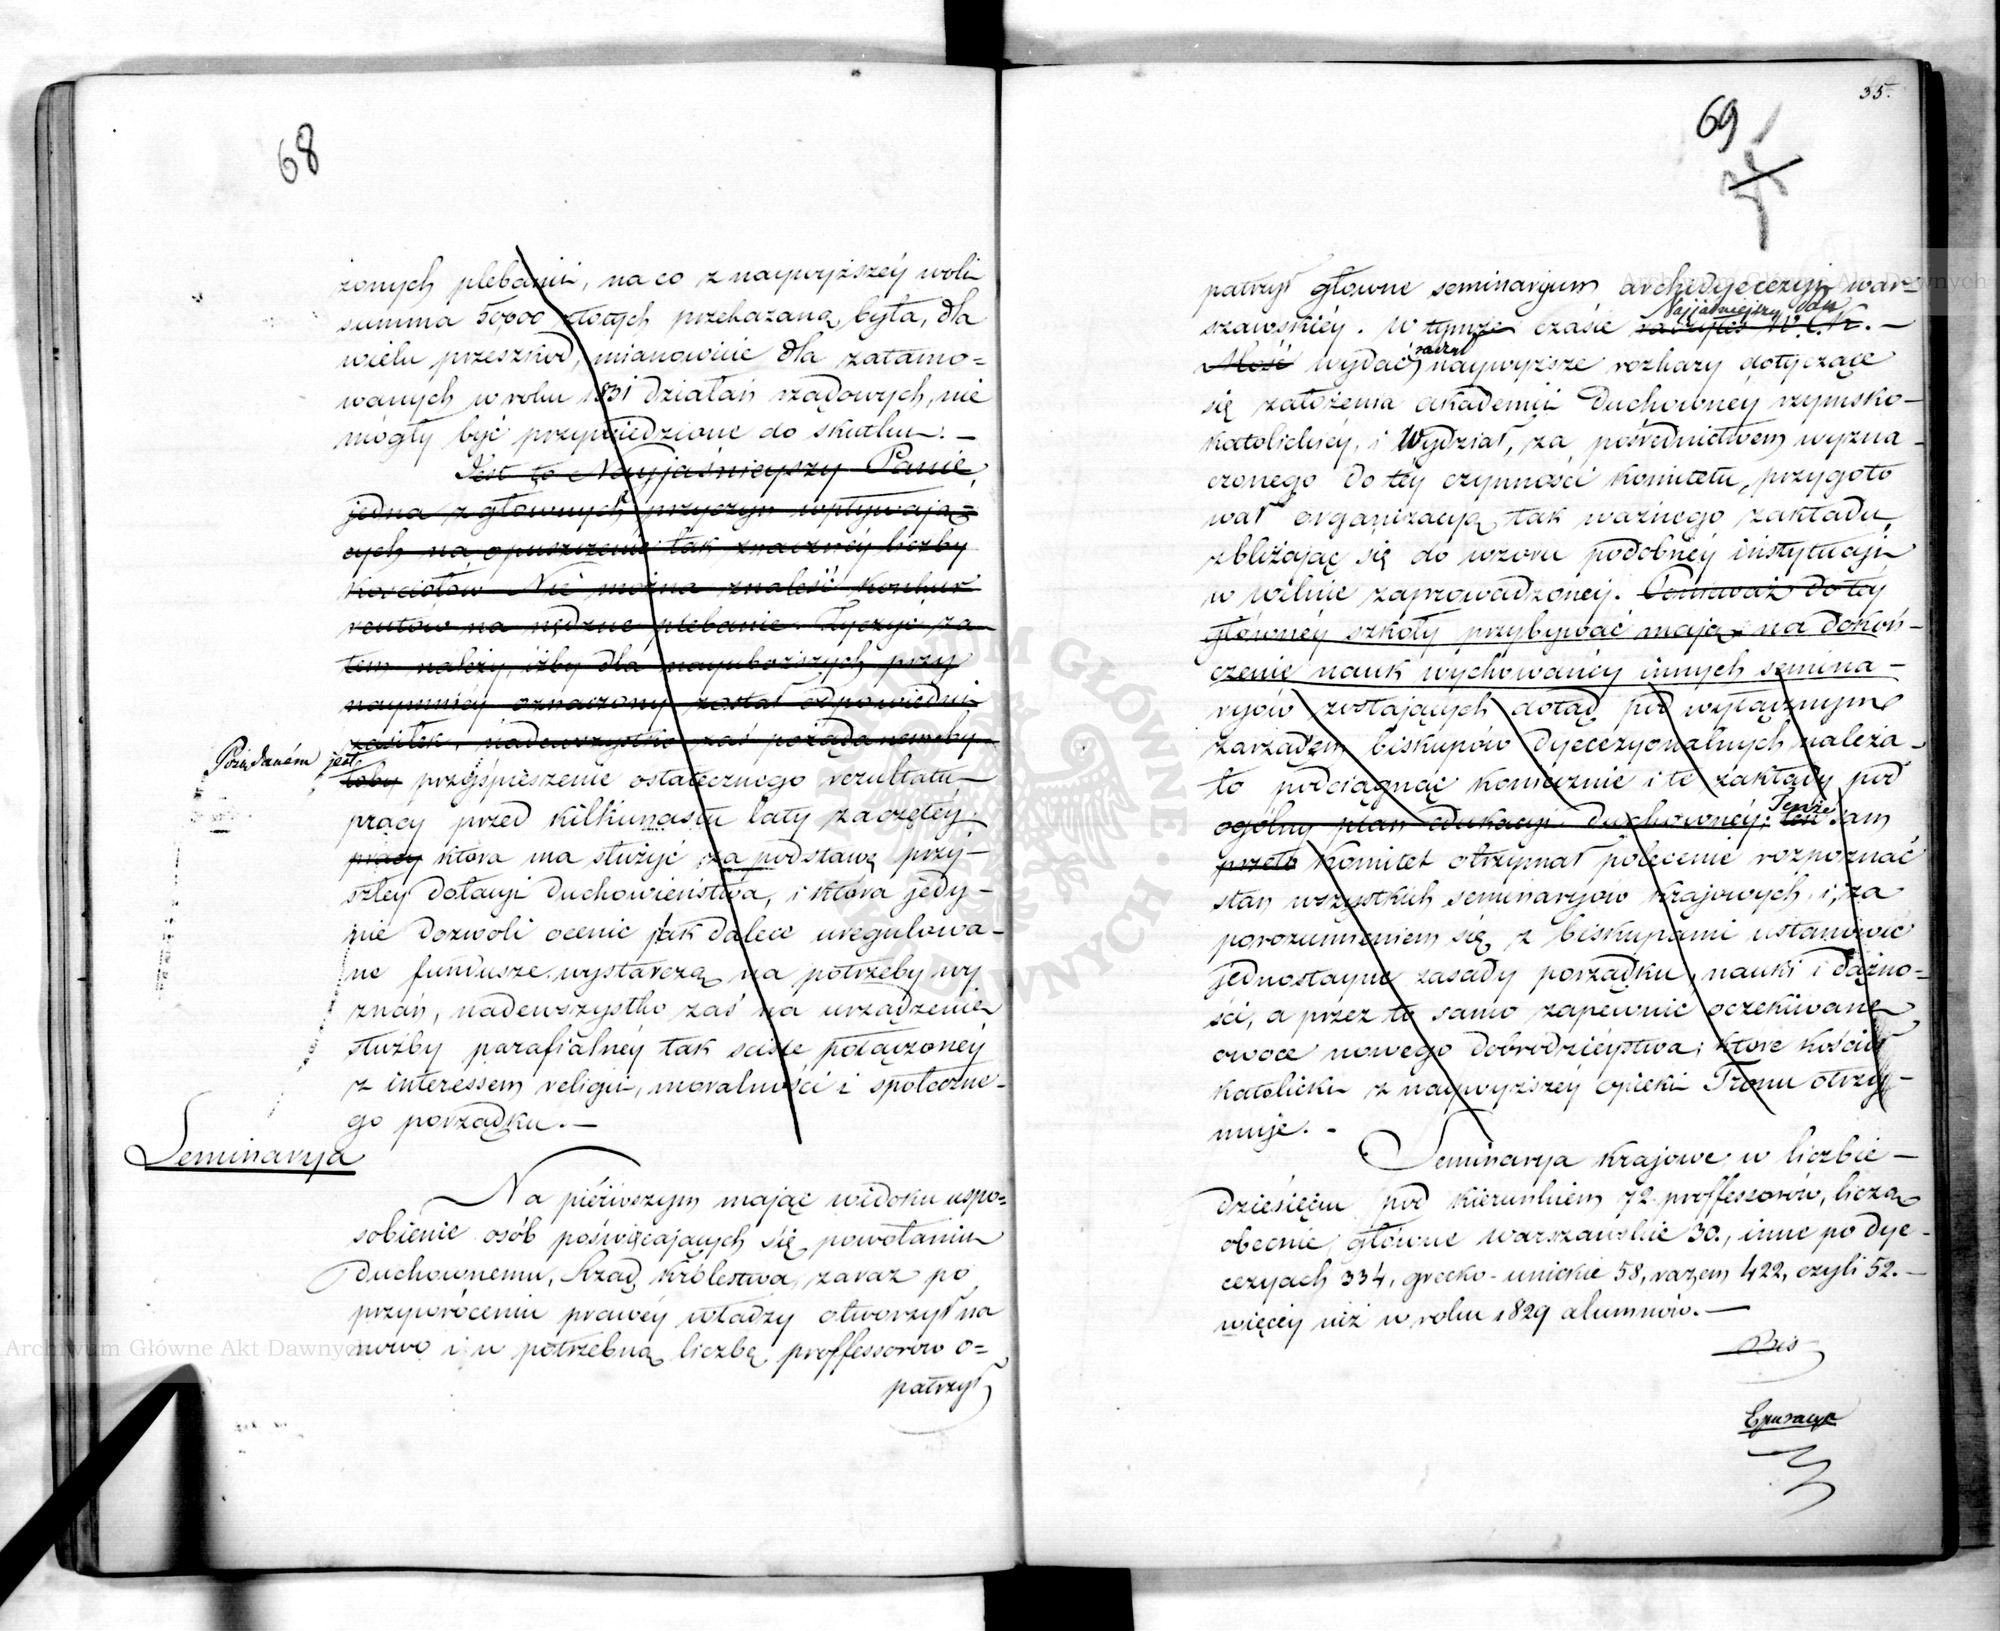 68
żonych plebanii, na co z naywyższéy woli
summa 50,000 złotych przekazaną była, dla
wielu przeszkod, mianowicie dla zatamo=
wanych w roku 1831 działań rządowych, nie
mogły być przywiedzione do skutku. —
Jest to Nayjaśnieyszy Panie,
jedna z głownych przyczyn wpływają=
cych na opuszczenie tak znaczney liczby
kościołów. Nie można znaleść konkur
rentów na nędzne plebanie. Życzyć za
tem należy, iżby dla nayuboższych przy
naymniéy oznaczony został odpowiedni
zasiłek, nadewszystko zaś pożądanemby
Pożądaném jest
toby przyśpieszenie ostatecznego rezultatu
pracy przed kilkunastu laty zaczętéy,
pracy która ma służyć za podstawę przy=
szłey dotacyi duchowieństwa, i która jedy=
nie dozwoli ocenić jak dalece uregulowa=
ne fundusze wystarczą na potrzeby wy
znań, nadewszystko zaś na urządzenie
służby parafialnéy tak sciśle połączonéy
z interessem religii, moralności i społeczne=
go porządku. —
Seminarya
Na piérwszym mając widoku uspo=
sobienie osób poświęcających się powołaniu
duchownemu, Rząd Królestwa, zaraz po
przywróceniu prawéy władzy otworzył na
nowo i w potrzebną liczbę proffessorów o=
patrzył
35.
69
patrzył głowne seminaryum archidyecezyi war=
szawskiéy. W tymże czasie raczyłeś W. C. K. —
Najjaśniejszy Pan
Mość wydać naywyższe rozkazy dotyczące
raczył
się założenia akademii Duchowney rzymsko-
katolickiéy, i Wydział, za pośrednictwem wyzna=
czonego do tey czynności komitetu, przygoto
wał organizacyą tak ważnego zakładu,
zbliżając się do wzoru podobnéy instytucyi
w Wilnie zaprowadzonéy. Ponieważ do téy
głównéy szkoły przybywać mają na dokoń=
czenie nauk wychowańcy innych semina=
ryów zostających dotąd pod wyłącznym
zarządem biskupów dyecezyonalnych należa=
ło podciągnąć koniecznie i te zakłady pod
ogólny plan edukacyi duchownéy; ten sam
Tenże
przeto Komitet otrzymał polecenie rozpoznać
stan wszystkich seminaryów krajowych, i, za
porozumieniem się z biskupami ustanowić
jednostayne zasady porządku, nauki i dążno=
ści, a przez to samo zapewnić oczekiwane
owoce nowego dobrodzieystwa, które kościół
katolicki z naywyższéy opieki Tronu otrzy=
muje. —
Seminarya krajowe w liczbie
dziesięciu pod kierunkiem 72 proffessorów, liczą
obecnie, główne warszawskie 30., inne po dye=
cezyach 334, grecko-unickie 58, razem 422, czyli 52. —
więcéy niż w roku 1829 alumnów. —
Archiwum Główne Akt Dawnych
Archiwum Główne Akt Dawnych
ARCHIWUM GŁÓWNE AKT DAWNYCH